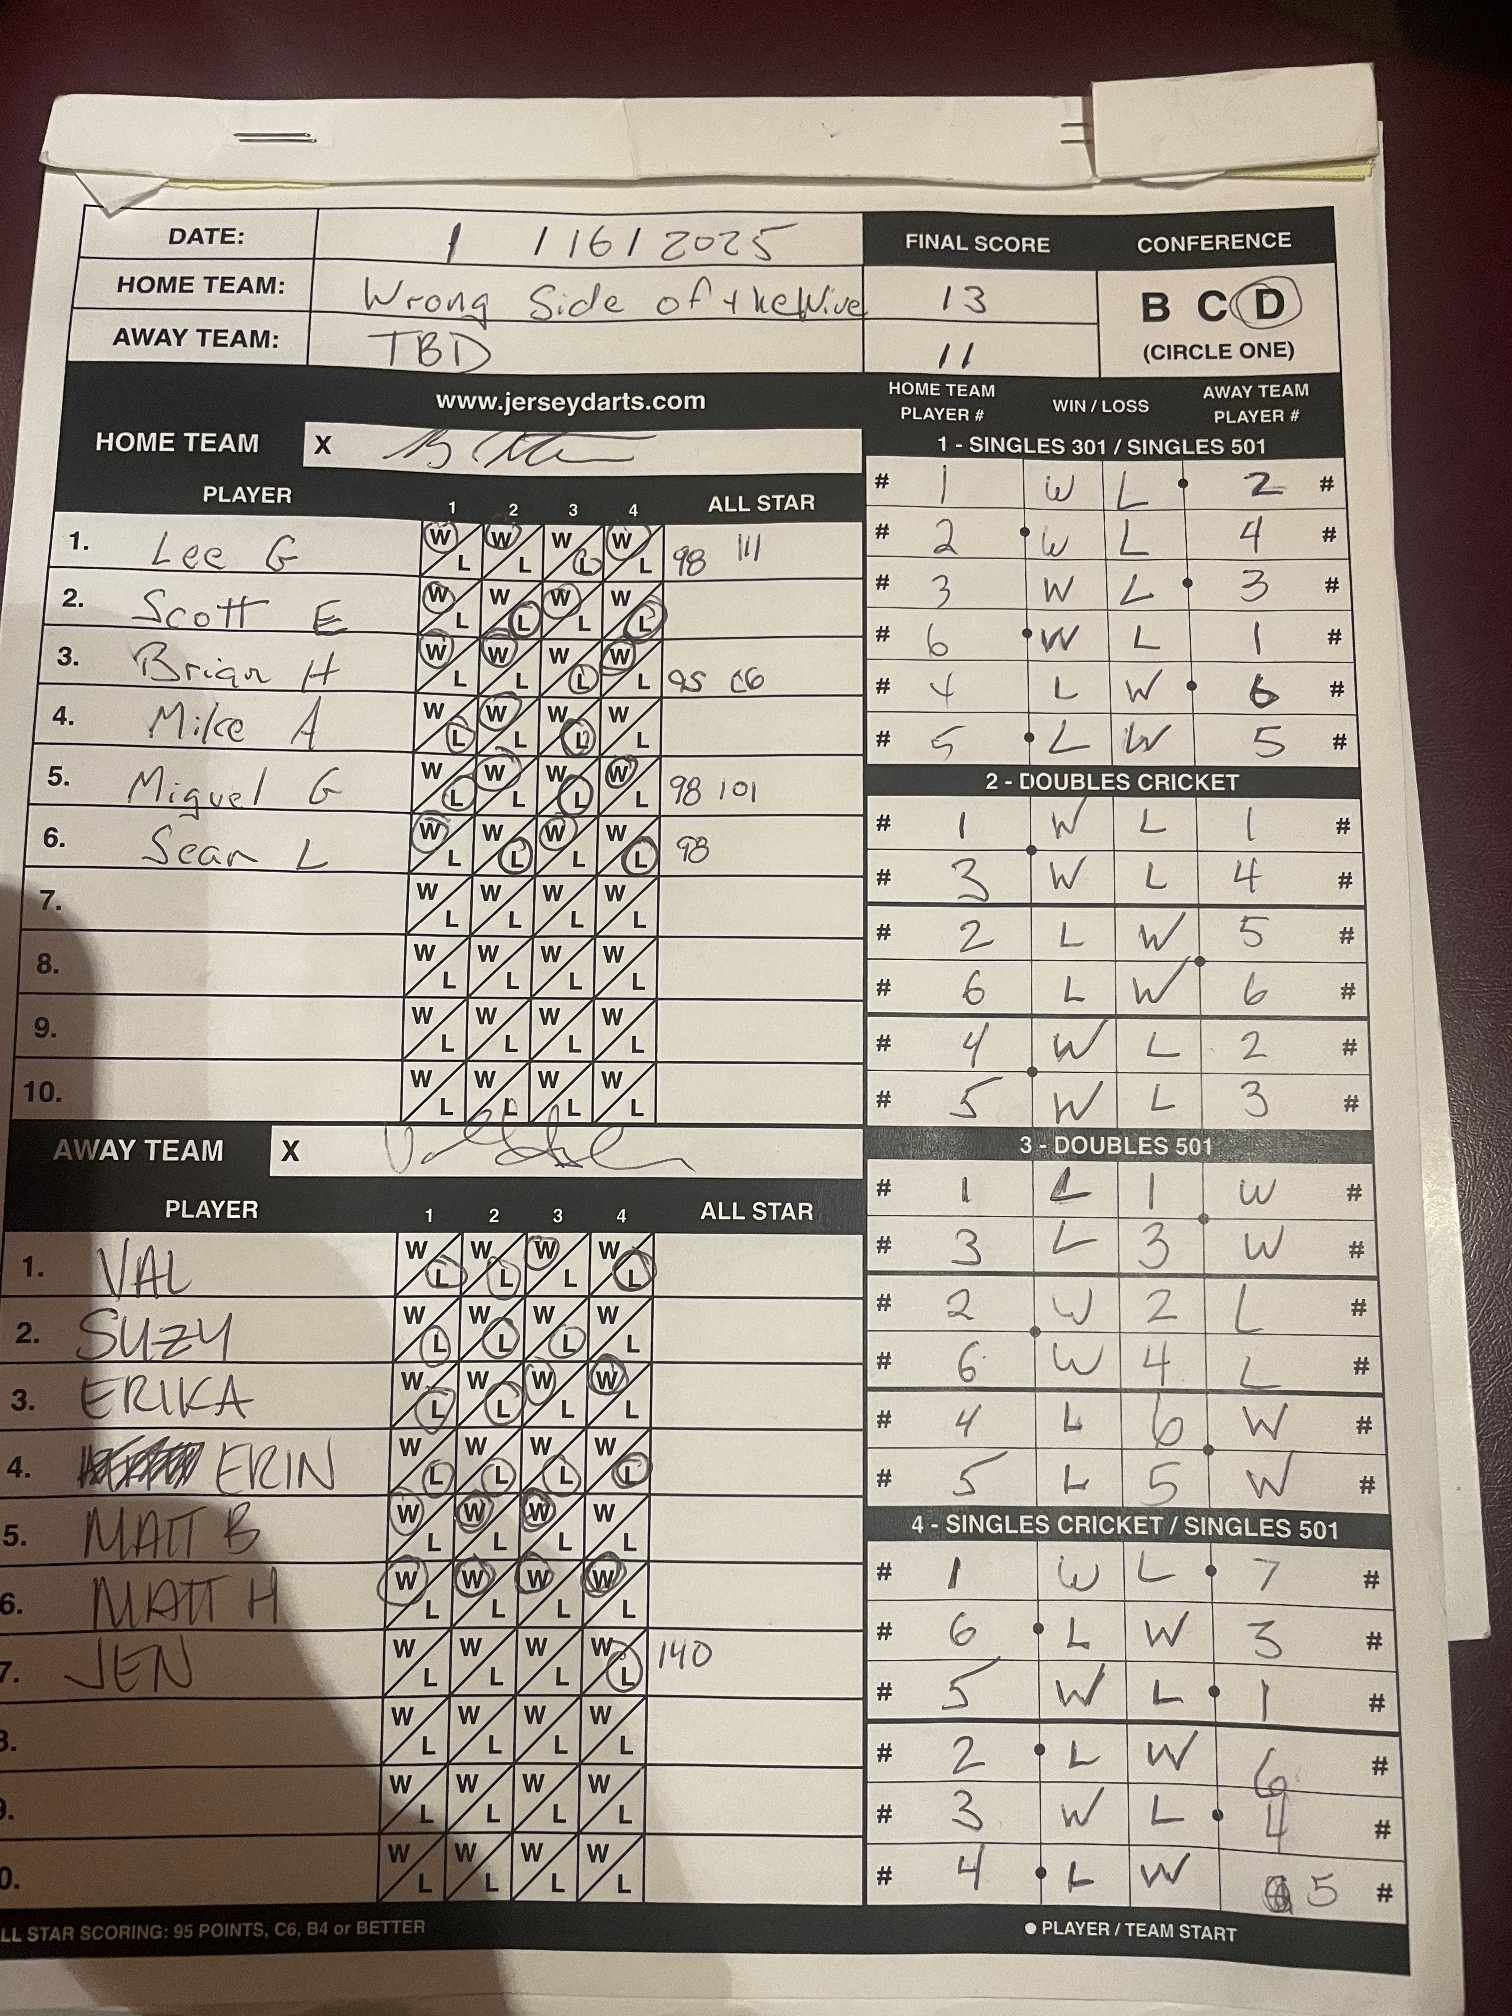 DATE: 1 / 16 / 2025
HOME TEAM: Wrong Side of the Wire
AWAY TEAM: TBD
FINAL SCORE
13
11
CONFERENCE
B C D
(CIRCLE ONE)
www.jerseydarts.com
HOME TEAM X
PLAYER 1 2 3 4 ALL STAR
1. Lee G W L W L W L W L 98 111
2. Scott E W L W L W L W L
3. Brian H W L W L W L W L 95 C6
4. Mike A W L W L W L W L
5. Miguel G W L W L W L W L 98 101
6. Sean L W L W L W L W L 98
7. W L W L W L W L
8. W L W L W L W L
9. W L W L W L W L
10. W L W L W L W L
AWAY TEAM X
PLAYER 1 2 3 4 ALL STAR
1. VAL W L W L W L W L
2. SUZY W L W L W L W L
3. ERIKA W L W L W L W L
4. ERIN W L W L W L W L
5. MATT B W L W L W L W L
6. MATT H W L W L W L W L
7. JEN W L W L W L W L 140
8. W L W L W L W L
9. W L W L W L W L
0. W L W L W L W L
LL STAR SCORING: 95 POINTS, C6, B4 or BETTER
HOME TEAM PLAYER # WIN / LOSS AWAY TEAM PLAYER #
1 - SINGLES 301 / SINGLES 501
# 1 W L 2 #
# 2 W L 4 #
# 3 W L 3 #
# 6 W L 1 #
# 4 L W 6 #
# 5 L W 5 #
2 - DOUBLES CRICKET
# 1 W L 1 #
# 3 W L 4 #
# 2 L W 5 #
# 6 L W 6 #
# 4 W L 2 #
# 5 W L 3 #
3 - DOUBLES 501
# 1 L 1 W #
# 3 L 3 W #
# 2 W 2 L #
# 6 W 4 L #
# 4 L 6 W #
# 5 L 5 W #
4 - SINGLES CRICKET / SINGLES 501
# 1 W L 7 #
# 6 L W 3 #
# 5 W L 1 #
# 2 L W 6 #
# 3 W L 4 #
# 4 L W 5 #
● PLAYER / TEAM START